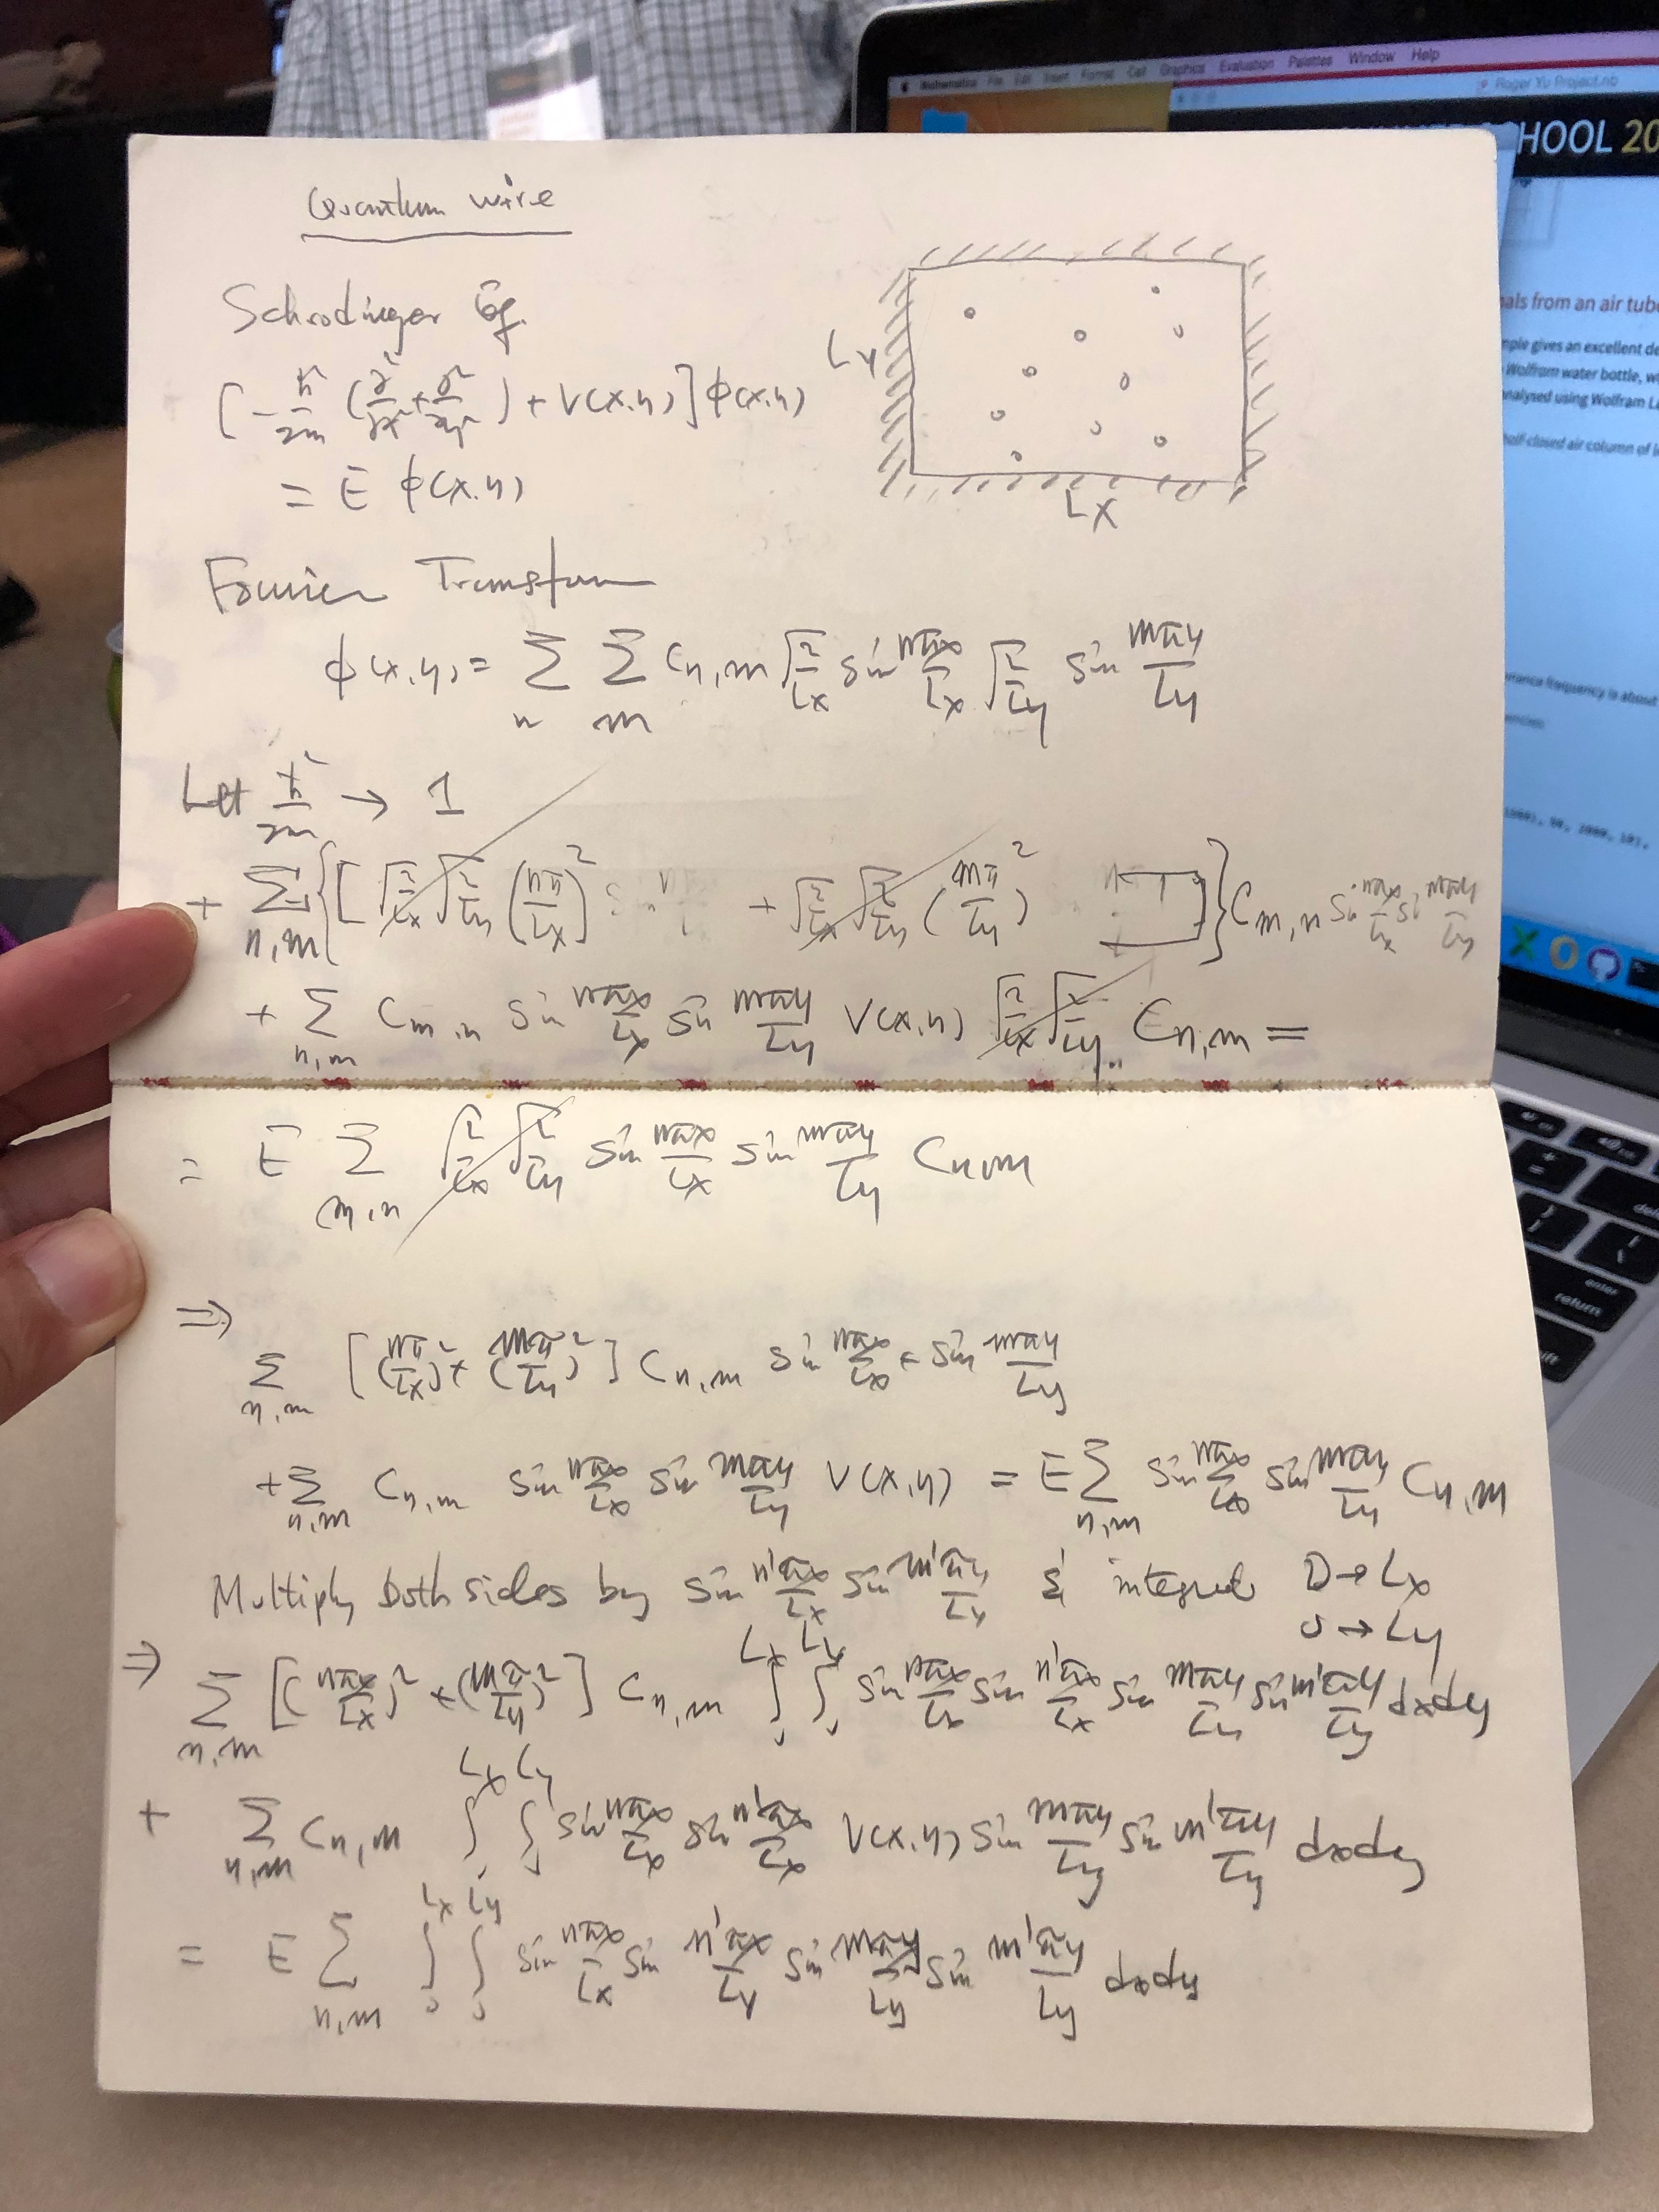 Mathematica File Edit Insert Format Cell Graphics Evaluation Palettes Window Help
Roger Yu Project.nb
HOOL 20
als from an air tube
mple gives an excellent de
Wolfram water bottle, w
nalysed using Wolfram La
half-closed air column of l
nance frequency is about
encies
enter
return
Quantum wire
Schrodinger Eq.
[-ħ²/2m (∂²/∂x² + ∂²/∂y²) + V(x,y)] φ(x,y)
= E φ(x,y)
Ly
Lx
Fourier Transform
φ(x,y) = Σ_n Σ_m C_n,m √(2/Lx) sin nπx/Lx √(2/Ly) sin mπy/Ly
Let ħ²/2m → 1
+ Σ_n,m {[√(2/Lx) √(2/Ly) (nπ/Lx)² + √(2/Lx) √(2/Ly) (mπ/Ly)² ]} C_m,n sin nπx/Lx sin mπy/Ly
+ Σ_n,m C_m,n sin nπx/Lx sin mπy/Ly V(x,y) √(2/Lx) √(2/Ly) C_n,m =
= E Σ_m,n √(2/Lx) √(2/Ly) sin nπx/Lx sin mπy/Ly C_n,m
⇒
Σ_n,m [(nπ/Lx)² + (mπ/Ly)²] C_n,m sin nπx/Lx · sin mπy/Ly
+ Σ_n,m C_n,m sin nπx/Lx sin mπy/Ly V(x,y) = E Σ_n,m sin nπx/Lx sin mπy/Ly C_n,m
Multiply both sides by sin n'πx/Lx sin m'πy/Ly & integral 0→Lx
0→Ly
⇒ Σ_n,m [(nπx/Lx)² + (mπ/Ly)²] C_n,m ∫_0^Lx ∫_0^Ly sin nπx/Lx sin n'πx/Lx sin mπy/Ly sin m'πy/Ly dxdy
+ Σ_n,m C_n,m ∫_0^Lx ∫_0^Ly sin nπx/Lx sin n'πx/Lx V(x,y) sin mπy/Ly sin m'πy/Ly dxdy
= E Σ_n,m ∫_0^Lx ∫_0^Ly sin nπx/Lx sin n'πx/Ly sin mπy/Ly sin m'πy/Ly dxdy